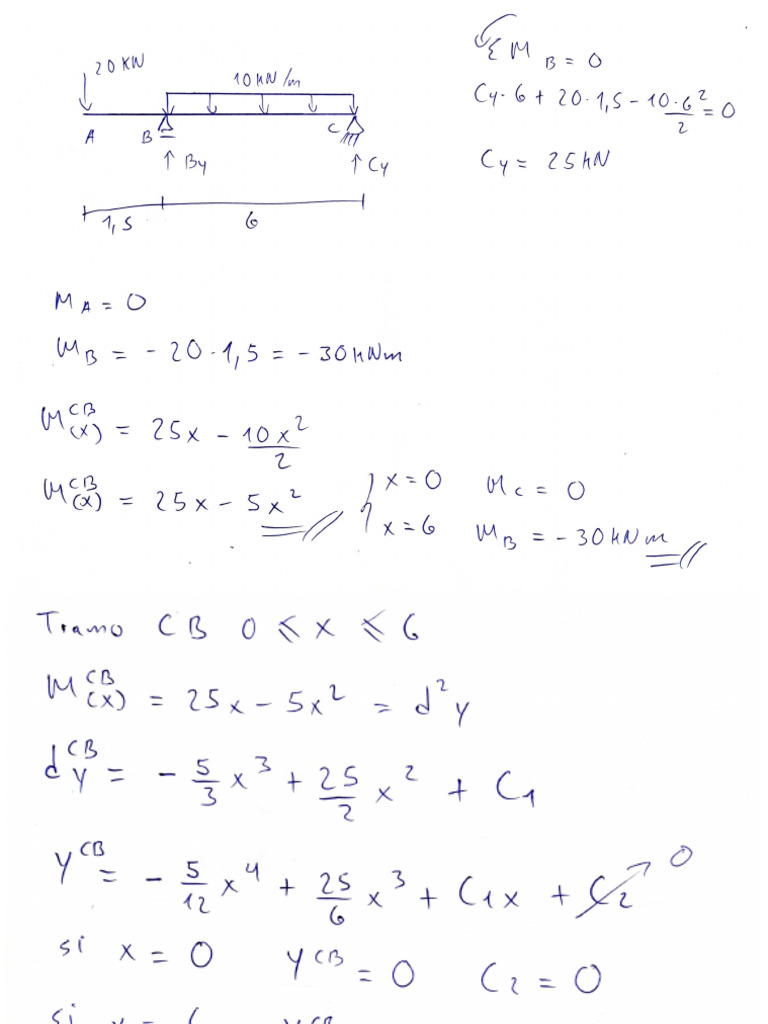 20 KN
10 kN/m
A B C
By Cy
1,5 6
Σ M B = 0
Cy·6 + 20·1,5 - 10·6²/2 = 0
Cy = 25 kN
M A = 0
M B = - 20·1,5 = - 30 kNm
M(x)^CB = 25x - 10x²/2
M(x)^CB = 25x - 5x² x = 0 Mc = 0
x = 6 M B = - 30 kNm
Tramo CB 0 ≤ x ≤ 6
M(x)^CB = 25x - 5x² = d²y
dy^CB = - 5/3 x³ + 25/2 x² + C1
y^CB = - 5/12 x⁴ + 25/6 x³ + C1x + C2 0
si x = 0 y^CB = 0 C2 = 0
si x = 6 y^CB